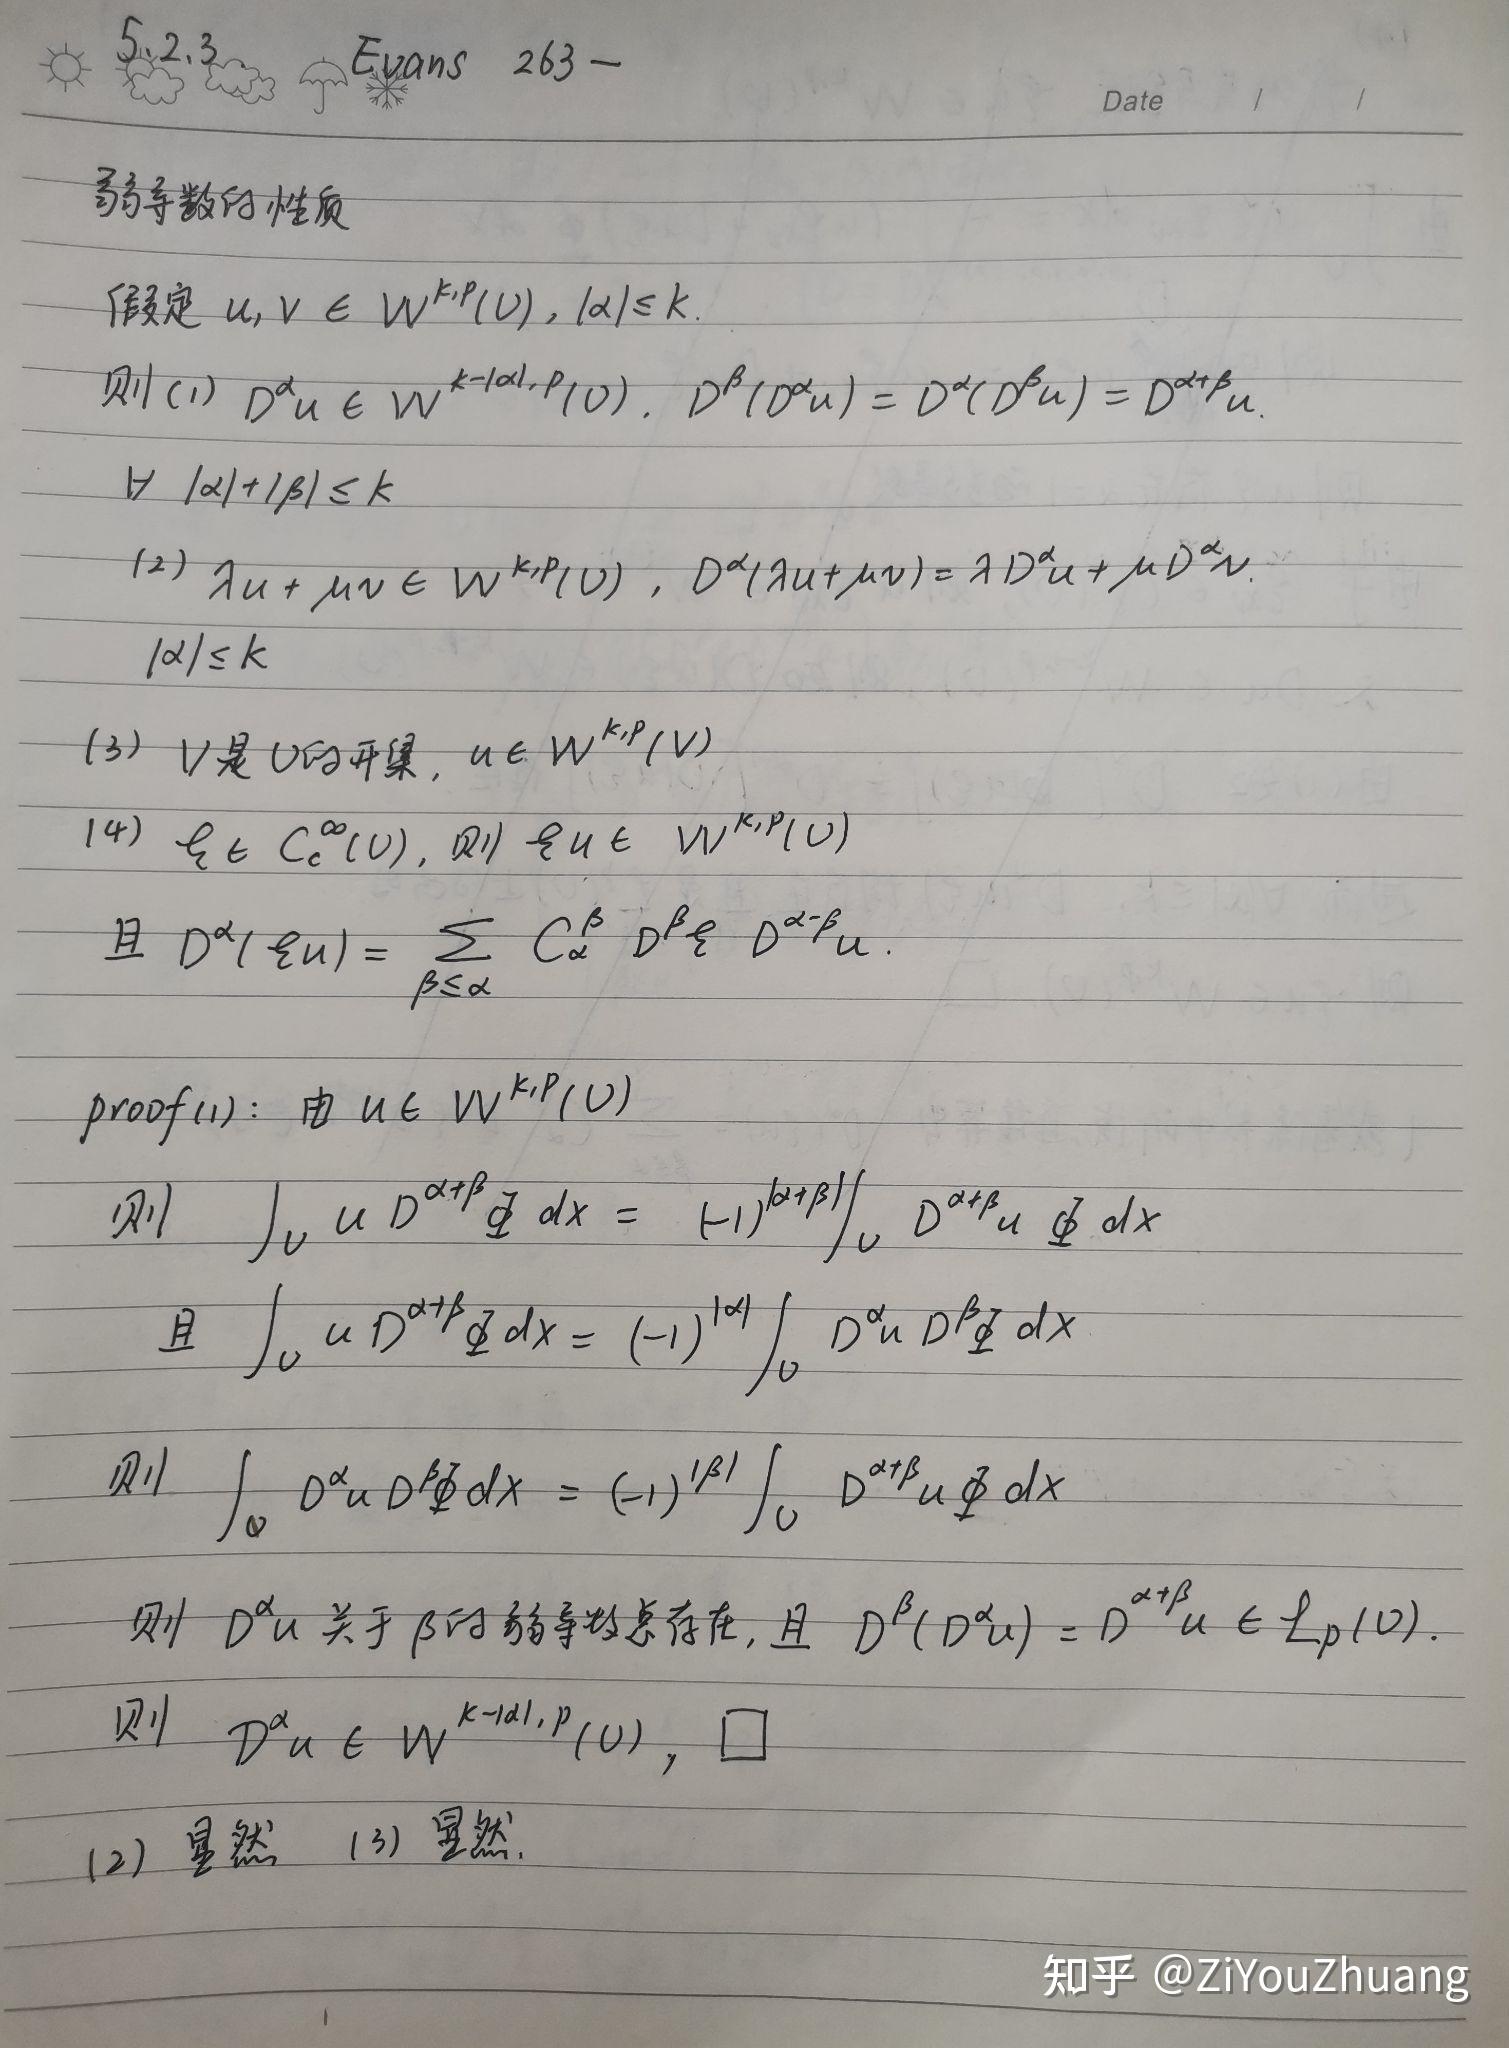 5.2.3 Evans 263—
Date / /
弱导数的性质
假定 u, v ∈ W^{k,p}(U), |α| ≤ k.
则(1) D^α u ∈ W^{k-|α|,p}(U). D^β(D^α u) = D^α(D^β u) = D^{α+β} u.
∀ |α|+|β| ≤ k
(2) λu + μv ∈ W^{k,p}(U), D^α(λu+μv) = λD^α u + μD^α v.
|α| ≤ k
(3) V是U的开集, u ∈ W^{k,p}(V)
(4) ξ ∈ C_c^∞(U), 则 ξu ∈ W^{k,p}(U)
且 D^α(ξu) = ∑_{β≤α} C_α^β D^β ξ D^{α-β} u.
proof(1): 由 u ∈ W^{k,p}(U)
则 ∫_U u D^{α+β} Φ dx = (-1)^{|α+β|} ∫_U D^{α+β} u Φ dx
且 ∫_U u D^{α+β} Φ dx = (-1)^{|α|} ∫_U D^α u D^β Φ dx
则 ∫_U D^α u D^β Φ dx = (-1)^{|β|} ∫_U D^{α+β} u Φ dx
则 D^α u 关于 β的弱导数总存在, 且 D^β(D^α u) = D^{α+β} u ∈ L_p(U).
则 D^α u ∈ W^{k-|α|,p}(U), □
(2) 显然 (3) 显然.
知乎 @ZiYouZhuang